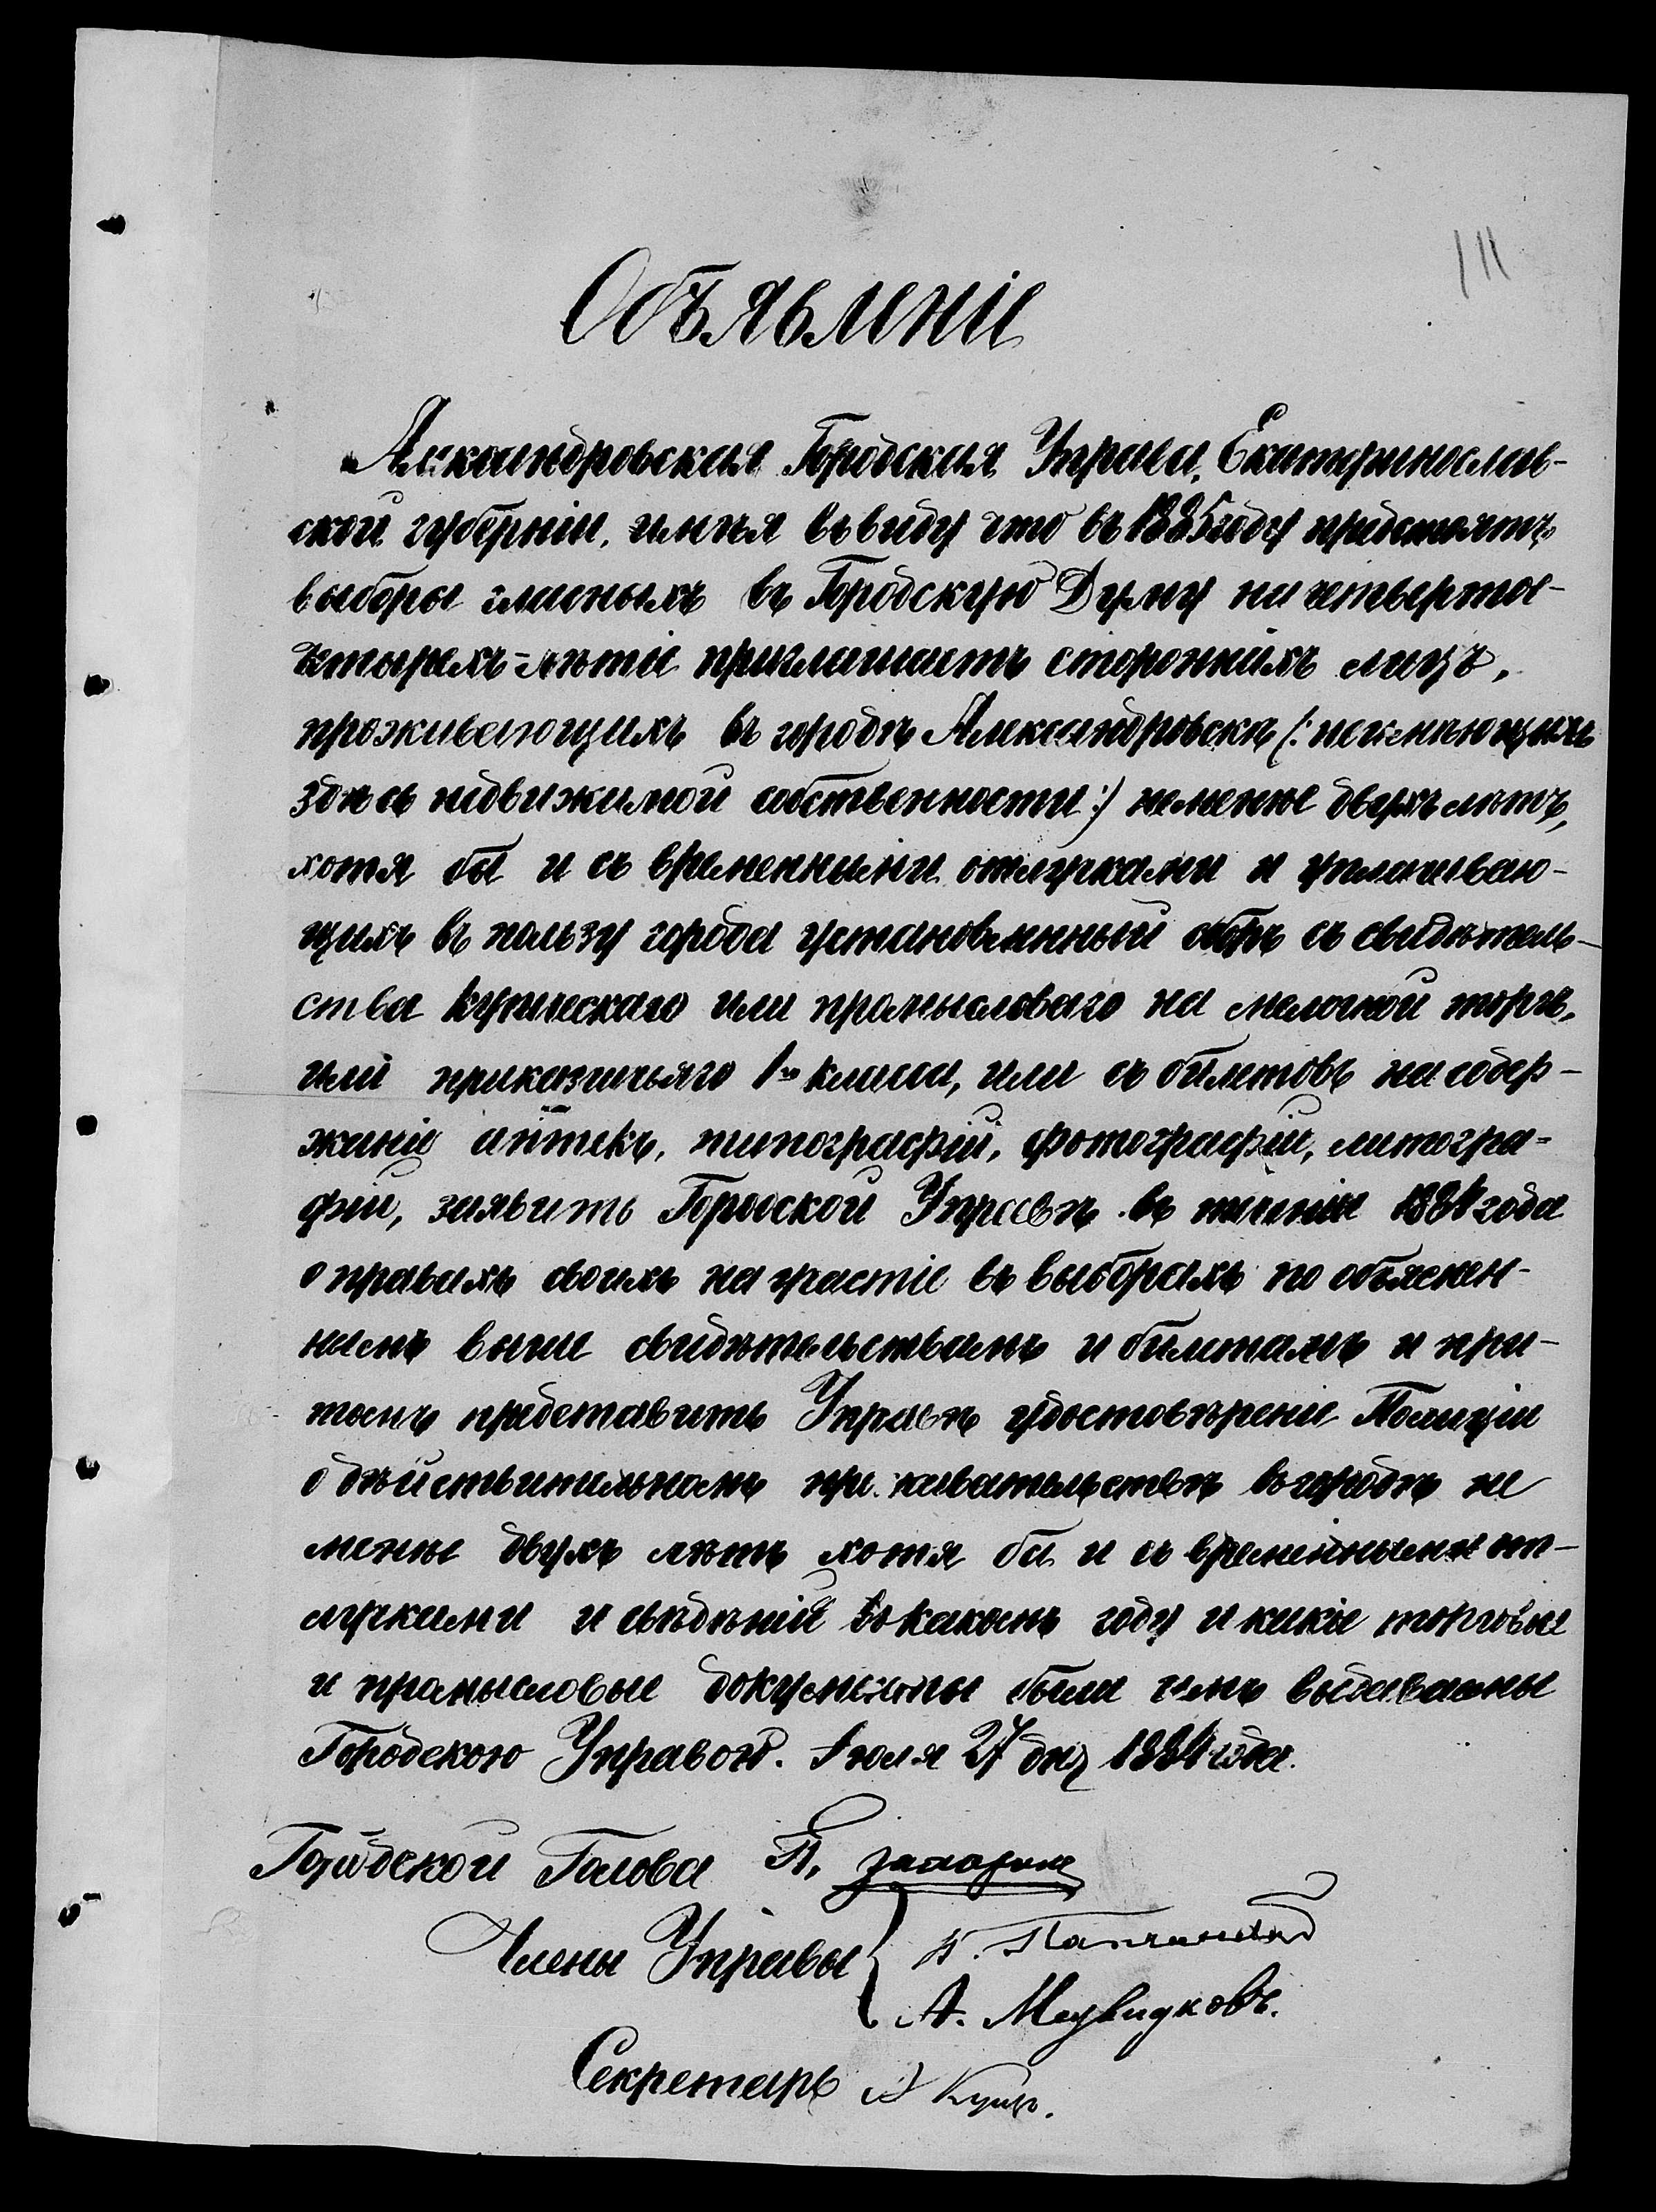 111
Объявленіе
Александровская Городская Управа, Екатеринослав-
ской губерніи, имѣя въ виду что въ 1885 году предстоятъ
выборы гласныхъ въ Городскую Думу на четвертое
четырехъ-лѣтіе приглашаетъ стороннихъ лицъ,
проживающихъ въ городѣ Александровскѣ (: неимѣющихъ
здѣсь недвижимой собственности :) неменѣе двухъ лѣтъ,
хотя бы и съ временными отлучками и уплачиваю-
щихъ въ пользу города установленный сборъ съ свидѣтель-
ства купческаго или промысловаго на мелочной торгъ,
или приказчичьяго 1го класса, или съ билетовъ на содер-
жаніе аптекъ, типографій, фотографій, литогра-
фій, заявить Городской Управѣ въ теченіи 1884 года
о правахъ своихъ на участіе въ выборахъ по объяснен-
нымъ выше свидѣтельствамъ и билетамъ и при-
томъ представить Управѣ удостовѣреніе Полиціи
о дѣйствительномъ проживательствѣ въ городѣ не
менѣе двухъ лѣтъ хотя бы и съ временными от-
лучками и свѣдѣній въ какомъ году и какіе торговые
и промысловые документы были имъ выдаваемы
Городскою Управою. Іюля 27 дня 1884 года.
Городской Голова
Члены Управы
А. Медвидковъ.
Секретарь